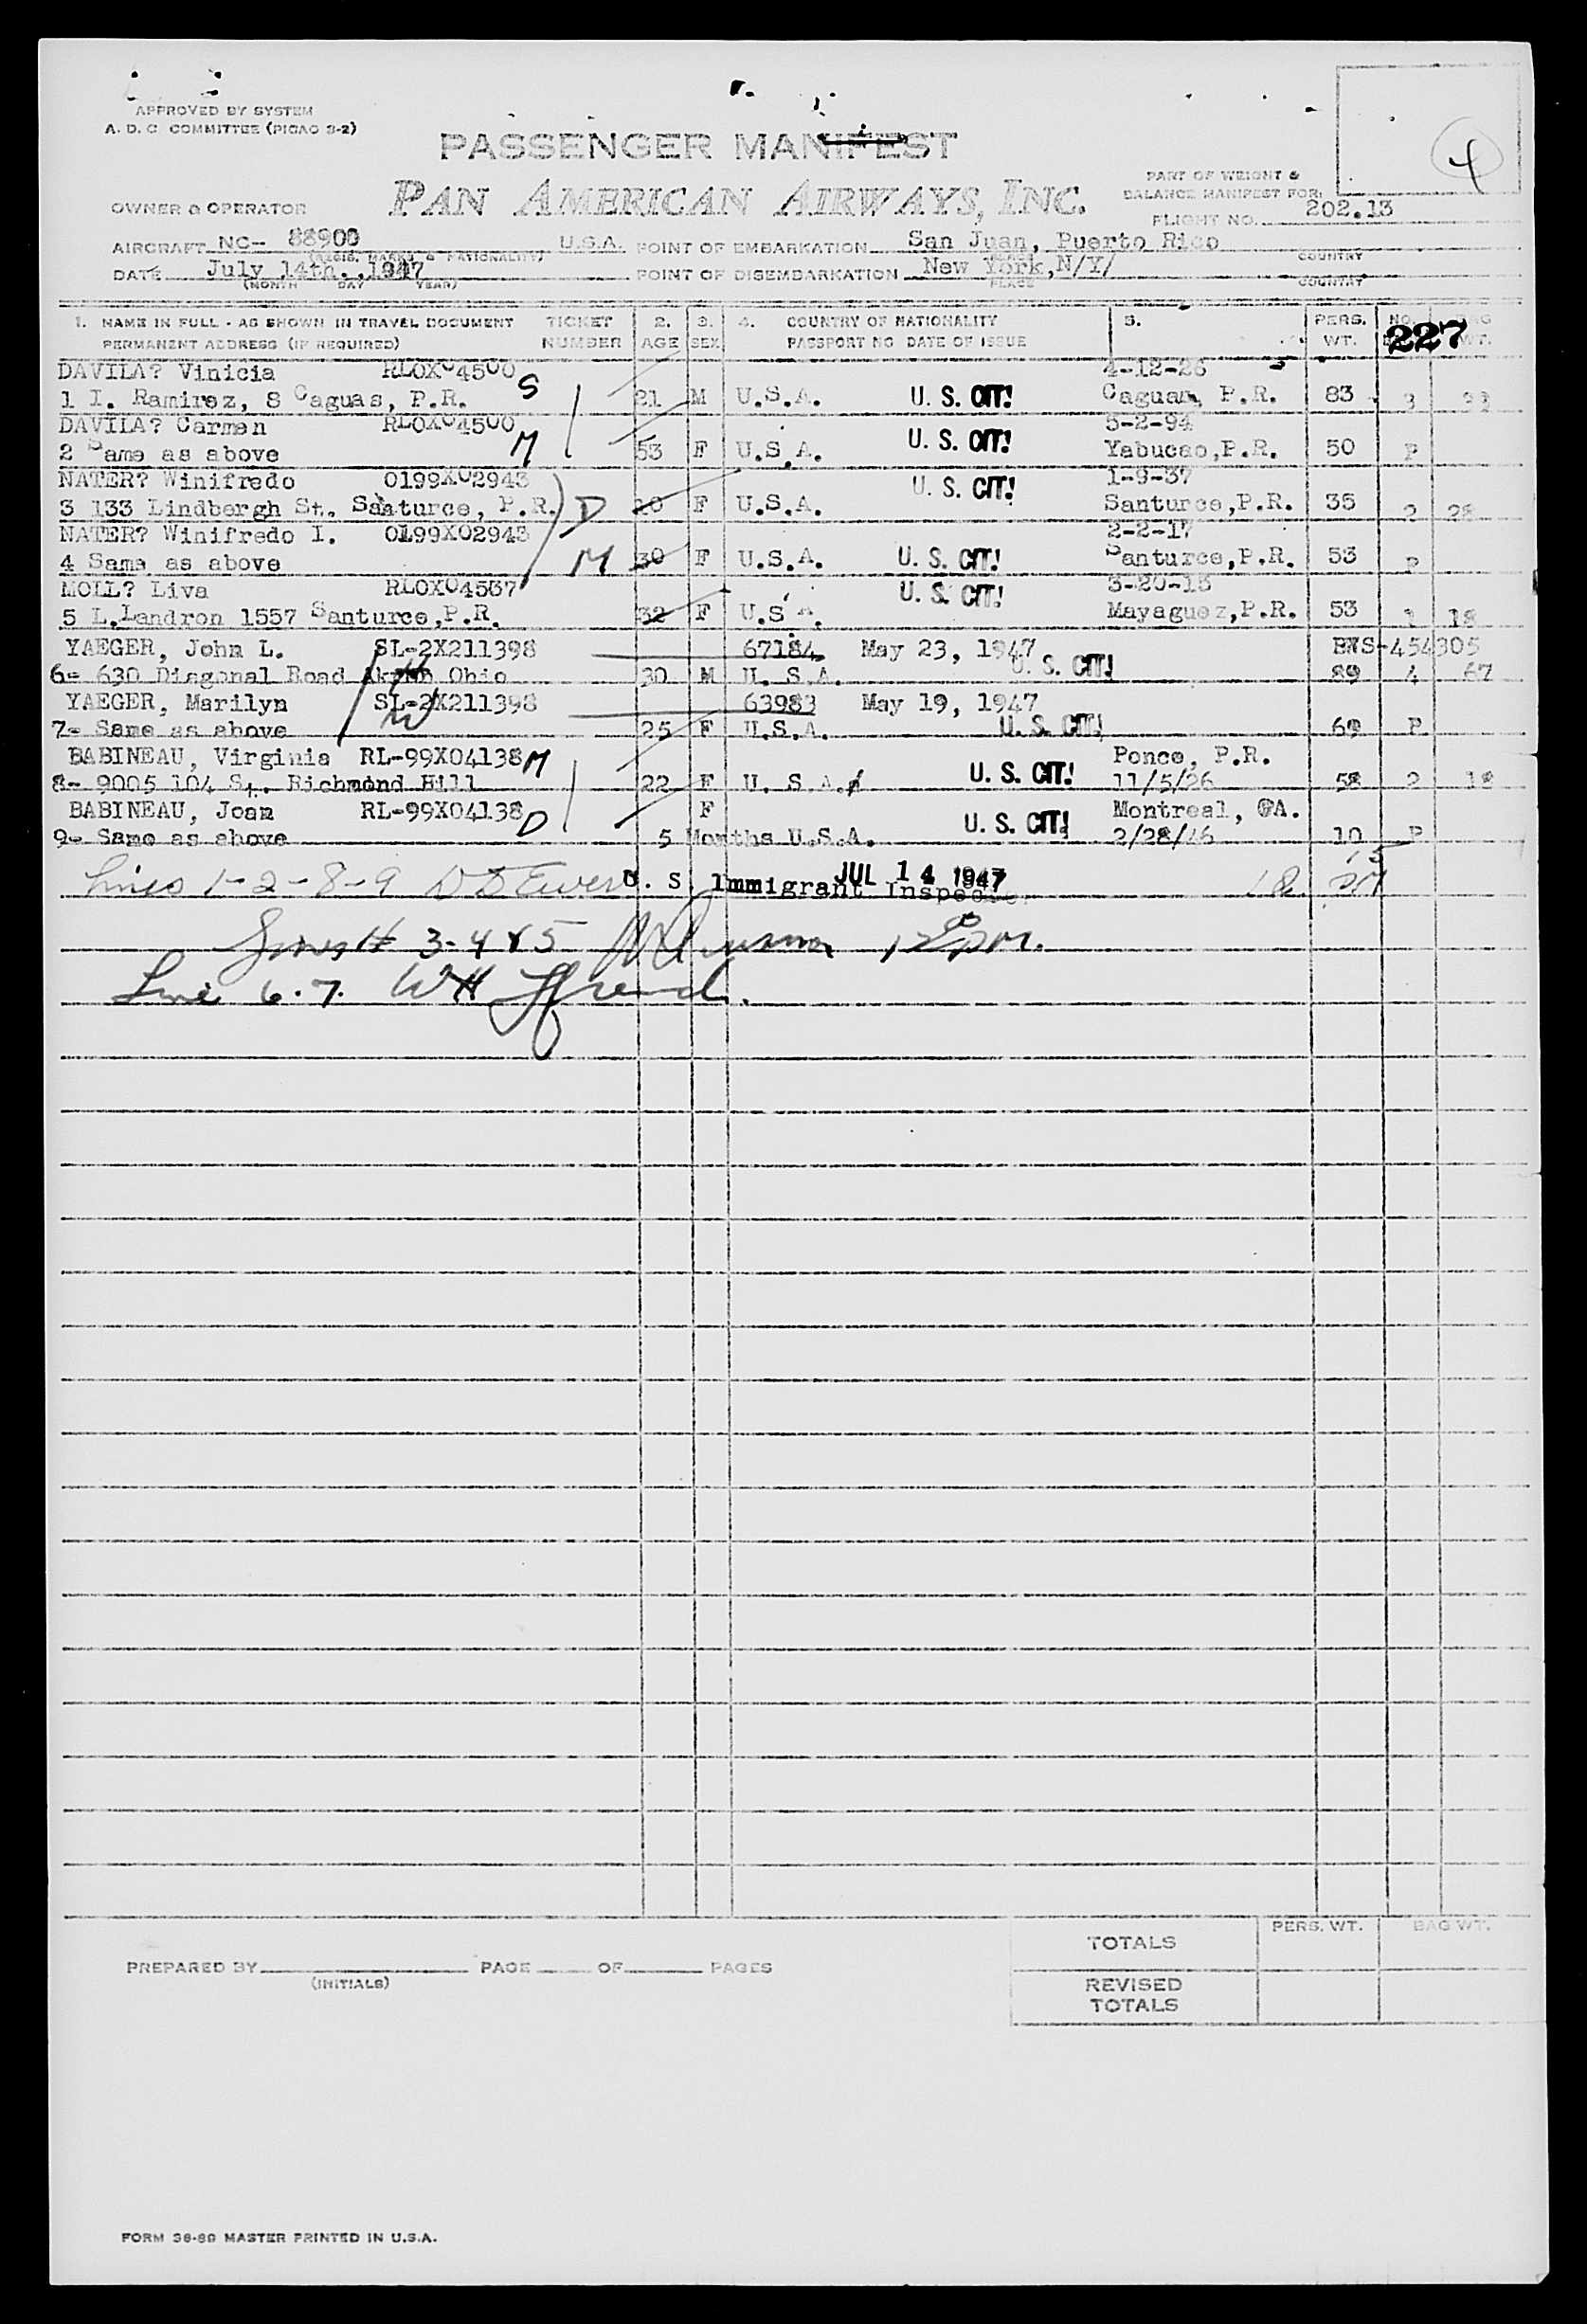 APPROVED BY SYSTEM
A. D. C COMMITTEE (PICAO 3-2)
4
PASSENGER MANIFEST
PAN AMERICAN AIRWAYS, INC.
PART OF WEIGHT &
BALANCE MANIFEST FOR:
OWNER & OPERATOR
FLIGHT NO. 202.13
AIRCRAFT NC- 88900 U.S.A. POINT OF EMBARKATION San Juan, Puerto Rico
(REGIS. MARKS & NATIONALITY) PLACE COUNTRY
DATE July 14th. ,1947 POINT OF DISEMBARKATION New York,N/Y/
(MONTH DAY YEAR) PLACE COUNTRY
1. NAME IN FULL - AS SHOWN IN TRAVEL DOCUMENT TICKET 2. 3. 4. COUNTRY OF NATIONALITY 5. PERS. NO. BAG
PERMANENT ADDRESS (IF REQUIRED) NUMBER AGE SEX PASSPORT NO DATE OF ISSUE WT. 227 WT.
DAVILA? Vinicia RLOX04500 4-12-26
1 I. Ramirez, 8 Caguas, P.R. S 21 M U.S.A. U. S. CIT! Caguas, P.R. 83 3
DAVILA? Carmen RLOX04500 5-2-94
2 Same as above M 53 F U.S.A. U. S. CIT! Yabucao,P.R. 50 P
NATER? Winifredo 0199X02943 U. S. CIT! 1-9-37
3 133 Lindbergh St. Santurce, P.R. D 10 F U.S.A. Santurce,P.R. 35 2 28
NATER? Winifredo I. 0199X02943 2-2-17
4 Same as above M 30 F U.S.A. U. S. CIT! Santurce,P.R. 53 P
MOLL? Liva RLOX04537 U. S. CIT! 3-20-15
5 L.Landron 1557 Santurce,P.R. 32 F U.S.A. Mayaguez,P.R. 53 1 18
YAEGER, John L. SL-2X211398 67184 May 23, 1947 454305
6- 630 Diagonal Road Akron Ohio H 30 M U. S.A. U. S. CIT! 89 4 67
YAEGER, Marilyn SL-2X211398 63983 May 19, 1947
7- Same as above W 25 F U.S.A. U. S. CIT! 69 P
BABINEAU, Virginia RL-99X04138 M Ponce, P.R.
8- 9005 104 St. Richmond Hill 22 F U. S.A. U. S. CIT! 11/5/26 58 2 18
BABINEAU, Joan RL-99X04138 F Montreal, CA.
9- Same as above D 5 Months U.S.A. U. S. CIT! 2/28/46 10 P
Lines 1-2-8-9 U. S. Immigrant Inspector JUL 14 1947
Lines # 3-4 & 5
Line 6.7. WH
PREPARED BY PAGE OF PAGES
(INITIALS)
PERS. WT. BAG WT.
TOTALS
REVISED
TOTALS
FORM 38-89 MASTER PRINTED IN U.S.A.